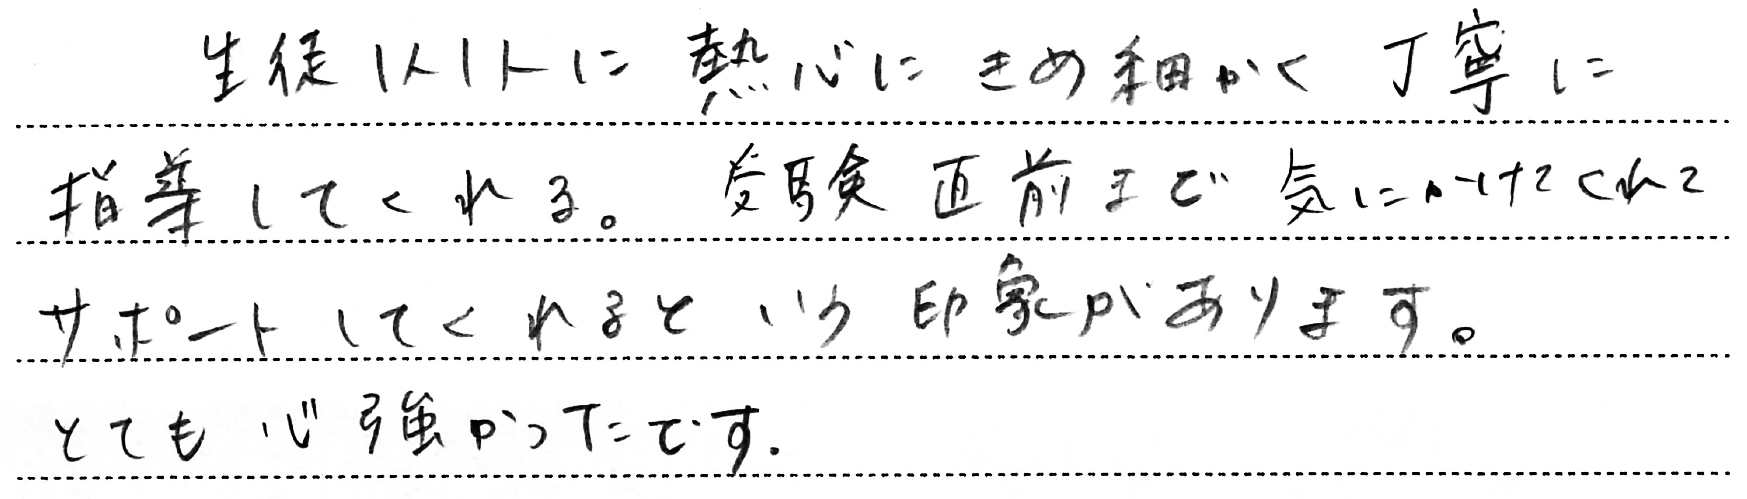 生徒1人1人に 熱心に きめ細かく 丁寧に
指導してくれる。 受験直前まで 気にかけてくれて
サポートしてくれるという印象があります。
とても心強かったです.